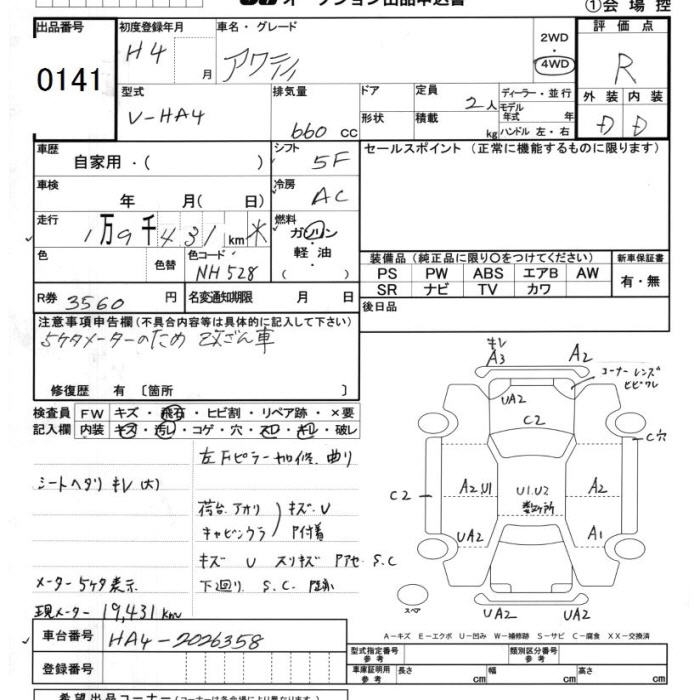 オークション出品申込書
①会場控
出品番号 初度登録年月 車名・グレード 2WD・4WD 評価点
0141 H4 月 アクティ R
型式 排気量 ドア 定員 ディーラー・並行 外装 内装
V-HA4 660 cc 形状 積載 2人 kg モデル年式 年式 ハンドル 左・右 D D
車歴 自家用・( ) シフト 5F セールスポイント (正常に機能するものに限ります)
車検 年 月( 日) 冷房 AC
走行 1万9千431km * 燃料 ガソリン・軽油・( )
色 色替 色コード NH528
装備品 (純正品に限り○をつけてください) 新車保証書
PS PW ABS エアB AW 有・無
SR ナビ TV カワ
R券 3560 円 名変通知期限 月 日 後日品
注意事項申告欄 (不具合内容等は具体的に記入して下さい)
5ケタメーターのため 改ざん車
修復歴 有 〔箇所 〕
検査員記入欄 FW キズ・飛石・ヒビ割・リペア跡・×要
内装 キズ・汚レ・コゲ・穴・スレ・キレ・破レ
左Fピラー 加修、曲り
シートヘタリ キレ(大)
荷台、アオリ キズ、U
キャビンウラ P付着
キズ U スリキズ Pアセ S.C
メーター5ケタ表示 下廻り S.C
現メーター 19,431km
キレ
A3 A2
コーナーレンズ
ヒビワレ
UA2
C2
C穴
C2 A2 U1 U1.U2 A2
UA2 A1
スペア UA2 UA2
A-キズ E-エクボ U-凹み W-補修跡 S-サビ C-腐食 XX-交換済
車台番号 HA4-2026358
型式指定番号 参考 類別区分番号 参考
登録番号 車庫証明用 参考 長さ cm 幅 cm 高さ cm
希望出品コーナー (コーナーは各会場により異なります。)